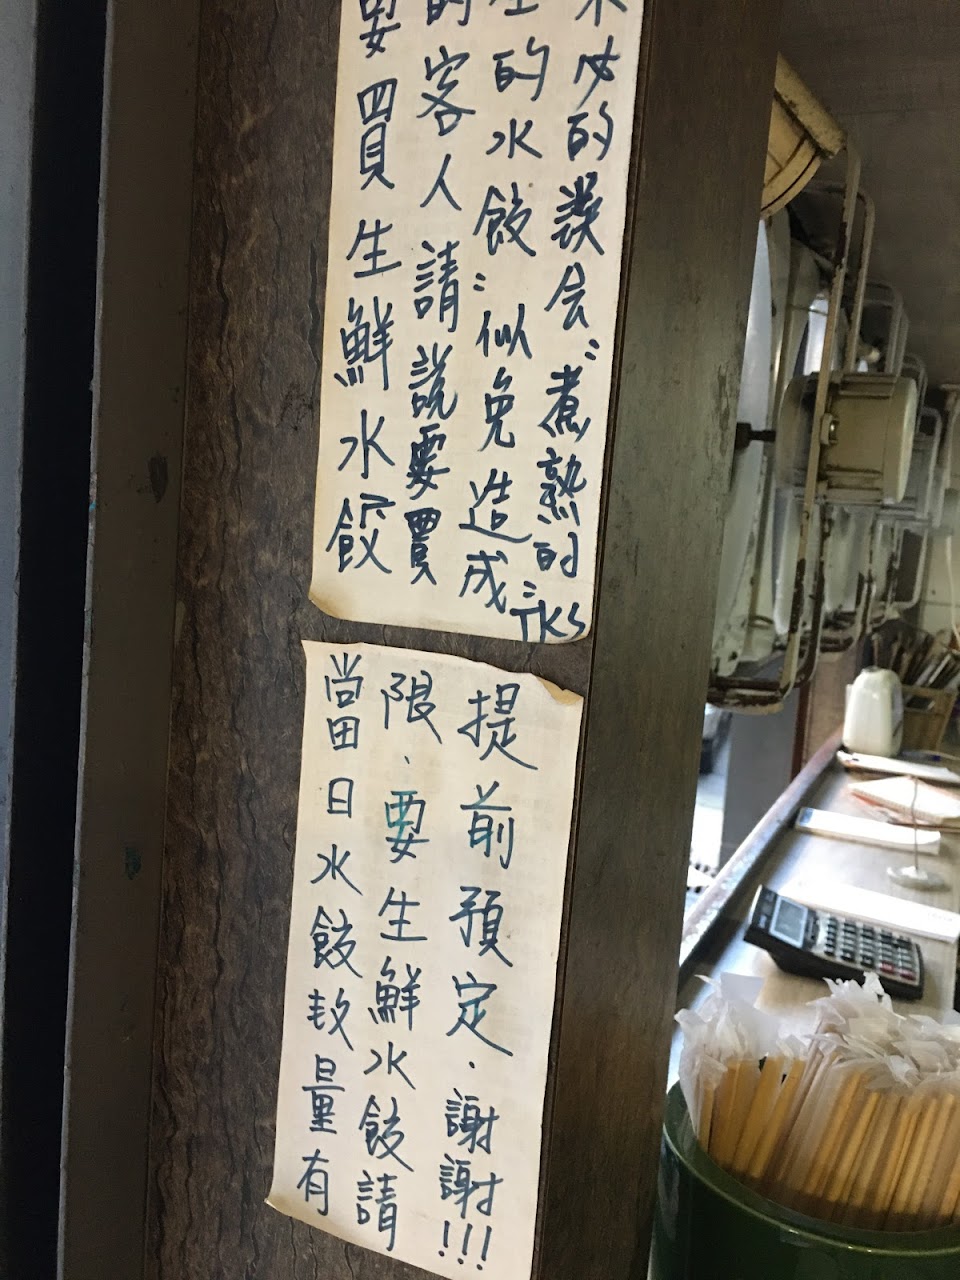 要買生鮮水餃
的客人請說要買
生的水餃:似免造成
不必的誤会:煮熟的:TKS
當日水餃數量有
限、要生鮮水餃請
提前預定.謝謝!!!